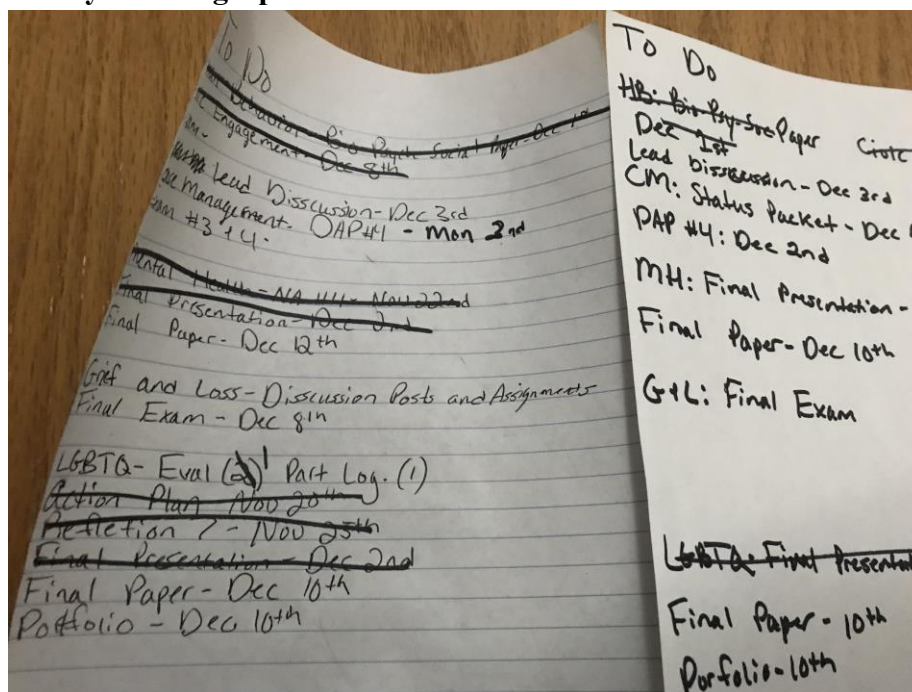 To Do
Behavior - Bio Psych Social Paper - Dec 1st
Engagement - Dec 8th
Lead Disscussion - Dec 3rd
Management - OAP #4 - Mon 2nd
#3 + 4.
Mental Health - NA #4 - Nov 22nd
Final Presentation - Dec 2nd
Final Paper - Dec 12th
Grief and Loss - Disscussion Posts and Assignments
Final Exam - Dec 8th
LGBTQ - Eval (2) 1 Part Log. (1)
Action Plan Nov 20th
Refletion 7 - Nov 25th
Final Presentation - Dec 2nd
Final Paper - Dec 10th
Portfolio - Dec 10th
To Do
HB: Bio-Psy-Soc Paper Civic
Dec 1st
Lead Disscussion - Dec 3rd
CM: Status Packet - Dec
DAP #4: Dec 2nd
MH: Final Presentation -
Final Paper - Dec 10th
G+L: Final Exam
LGBTQ: Final Presentat
Final Paper - 10th
Porfolio - 10th